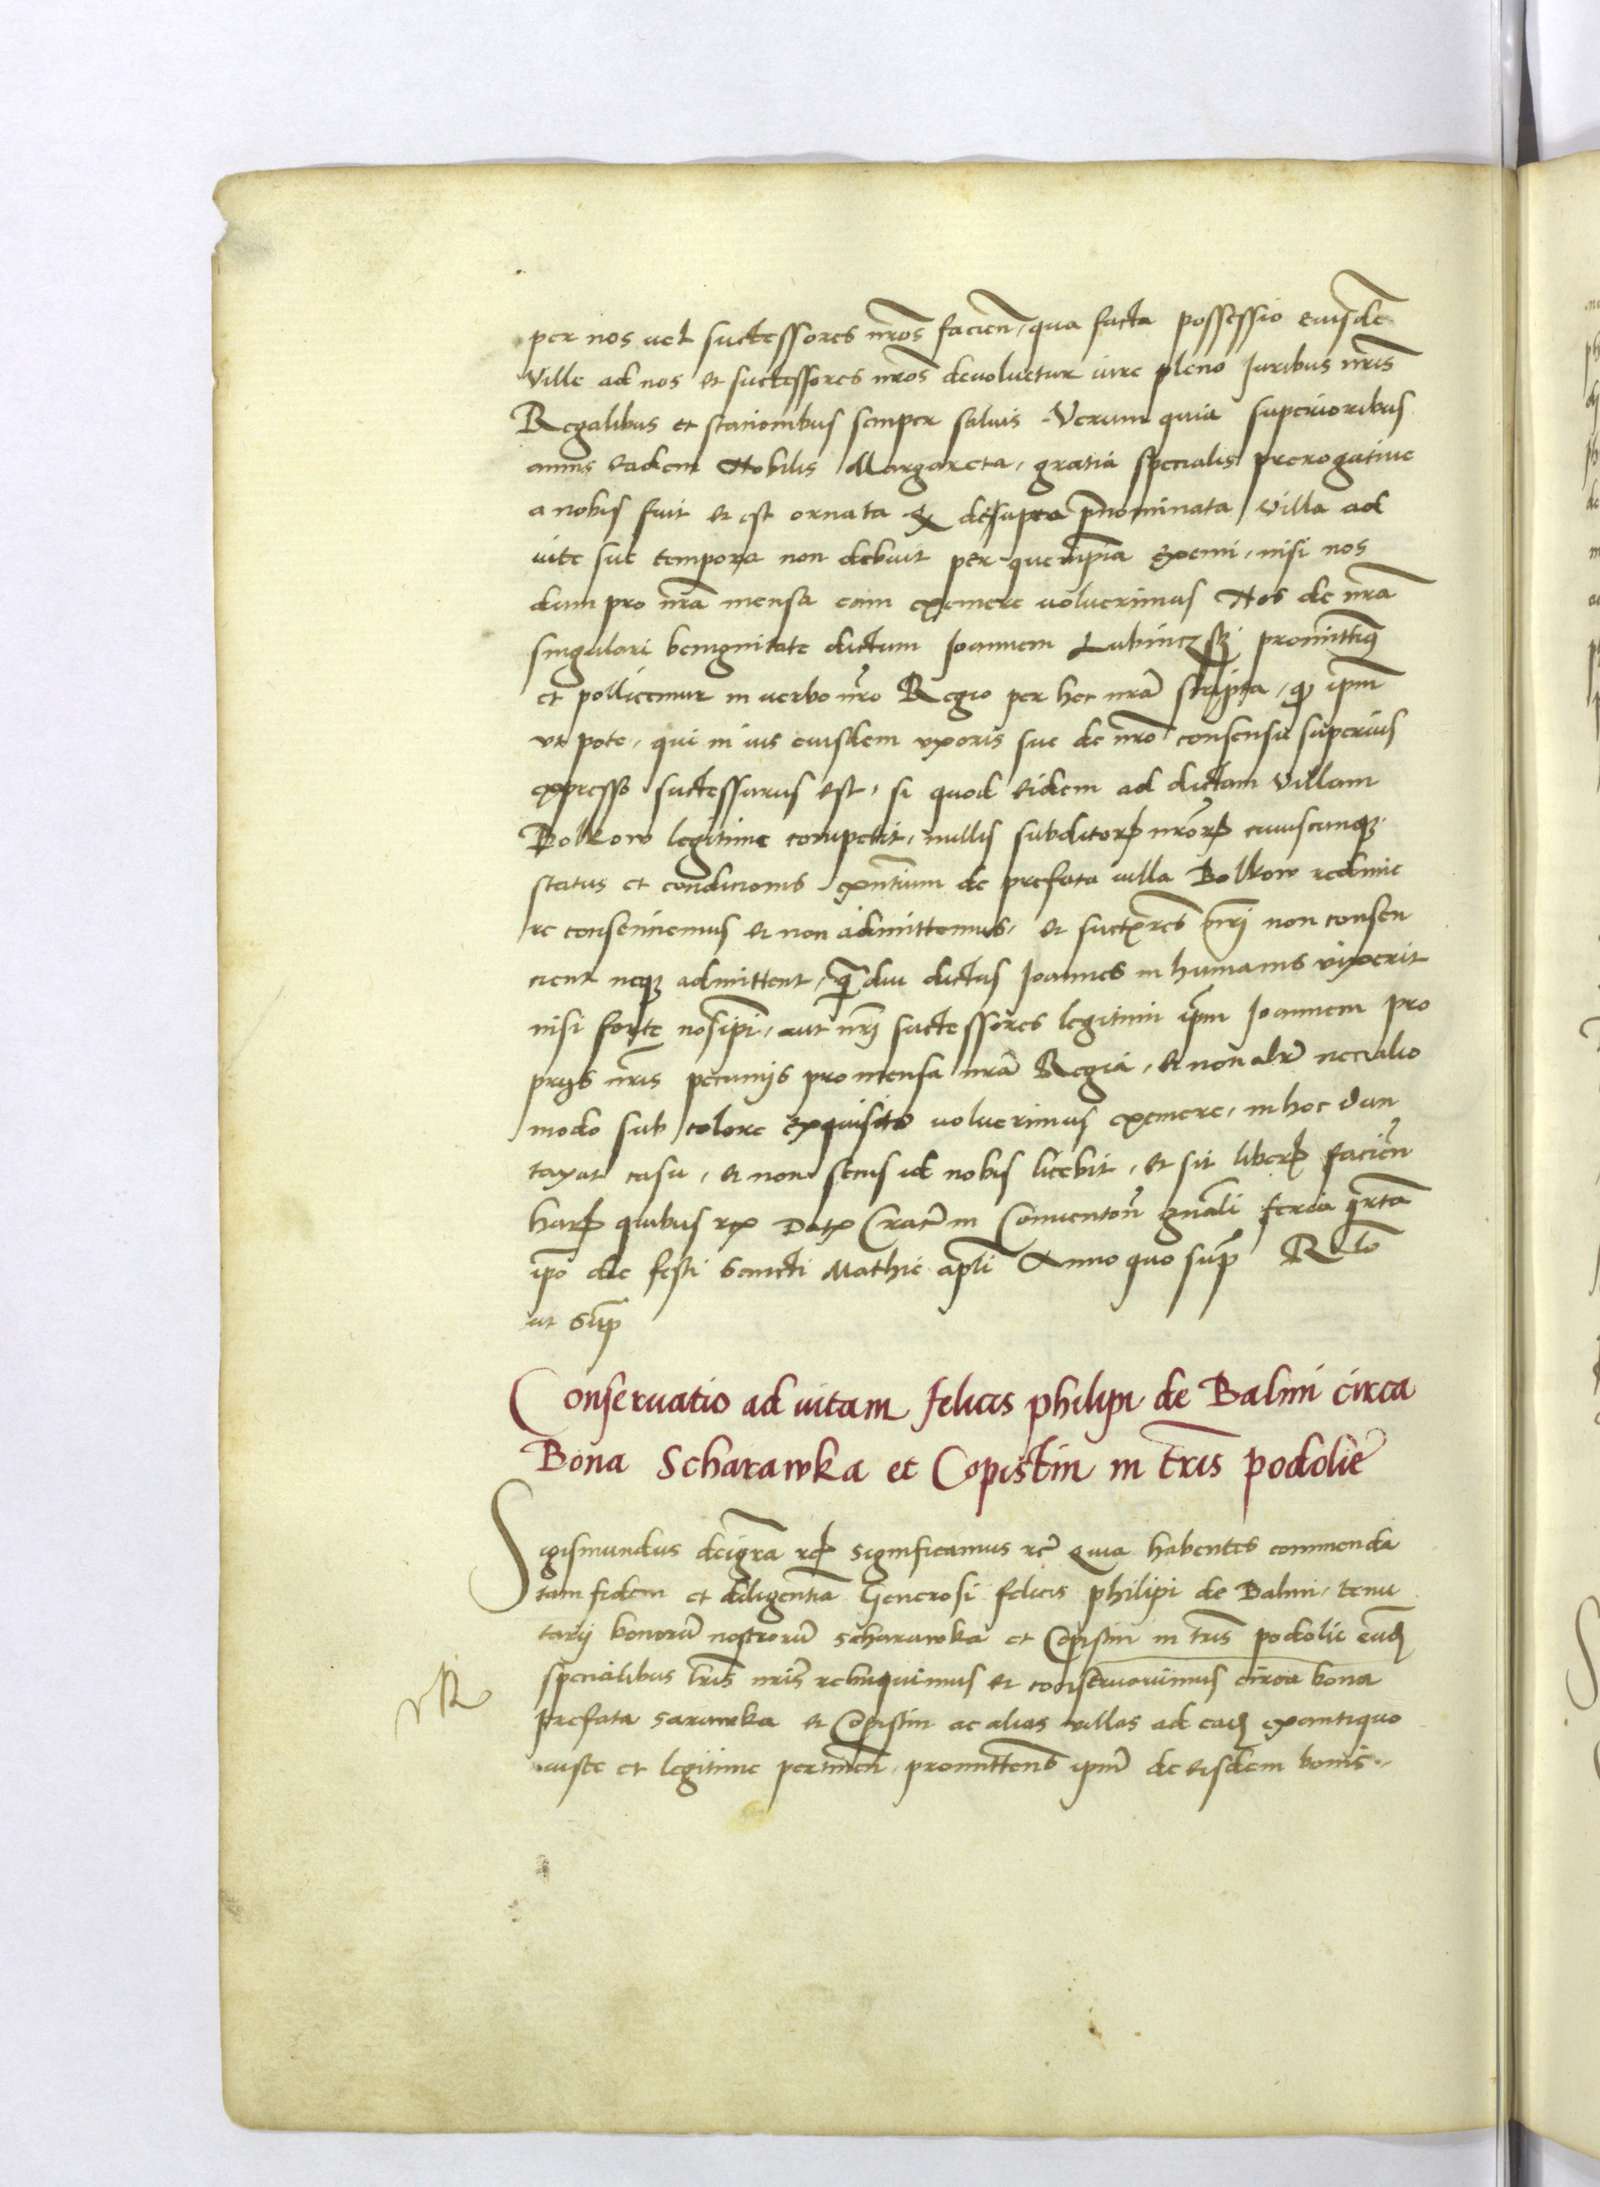 per nos uel successores nr̃os facien̄, qua facta possessio eiusdē
Ville ad nos et successores nr̃os deuoluetur iure pleno Iuribus nr̃is
Regalibus et stacionibus semper saluis. Verum quia superioribus
annis eadem Nobilis Margareta, gratia specialis prerogatiue
a nobis fuit et est ornata desupra p̄nominata Villa ad
vite sue tempora non debuit per quempiā exemi, nisi nos
dum pro nr̃a mensa eam exemere voluerimus Nos de nr̃a
singulari benignitate dictum Ioannem promittimꝰ
et pollicemur in verbo nr̃o Regio per hec nr̃a scripta, qꝫ ipm̄
vt pote, qui in ius eiusdem vxoris sue de nr̃o consensu superius
expresso successurus est, si quod eidem ad dictam Villam
Bolkow legitime competit, nullis subditorꝝ nr̃orꝝ cuiuscunqꝫ
status et condicionis exn̄tium de prefata villa Bolkow redime
re consenciemus et non admittemus, et succx̄res nr̃i non consen
cient neqꝫ admittent, qȝ̄diu dictus Ioannes in humanis vixerit
nisi forte nosipī, aut nr̃i successores legitimi ip̄m Ioannem pro
prijs nr̃is pecunijs pro mensa nr̃a Regia, et non alr̃ nec alio
modo sub colore exquisito voluerimus exemere, in hoc dun
taxat casu, et non secus id nobis licebit, et sit liberꝝ facien̄
harꝝ quibus rꝫ Datꝫ Crac̄ in Conuenton̄ gn̄ali feria q̄rta
ip̄o die festi Sancti Mathie apl̄i Anno quo sup̄ Rlō
ut sup̄
Conseruatio ad vitam felicis philipi de Balini circa
Bona Scharawka et Copistin in tr̄is podolie
Sigismundus deigr̄a rꝫ significamus rc̄ Quia habentes commenda
tam fidem et diligentiā Generosi felicis philipi de Balini, tenu
tarij bonorū nostrorū scharawka et Copistin in tr̄is podolie eundꝫ
specialibus lr̄is nr̄is relinquimus et conseruauimus circa bona
prefata sarawka et Copistin ac alias villas ad eadꝫ exantiquo
iuste et legitime pertinen̄, promittens ipm̄ de eisdem bonis